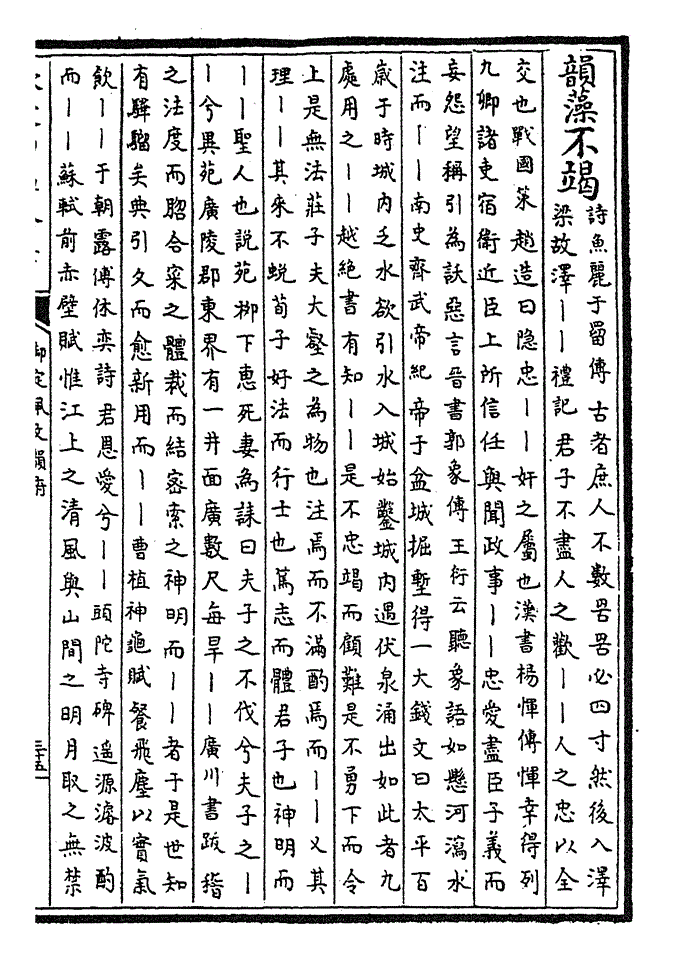 韻藻不竭
詩魚麗于罶傳古者庶人不數罟罟必四寸然後入澤
梁故澤丨丨禮記君子不盡人之歡丨丨人之忠以全
交也戰國策趙造曰隐忠丨丨奸之屬也漢書楊惲傳惲幸得列
九卿諸吏宿衛近臣上所信任與聞政事丨丨忠愛盡臣子義而
妄怨望稱引為訞惡言晉書郭象傳王衍云聽象語如懸河瀉水
注而丨丨南史齊武帝紀帝于盆城掘塹得一大錢文曰太平百
歲于時城内乏水欲引水入城始鑿城内遇伏泉涌出如此者九
處用之丨丨越絶書有知丨丨是不忠竭而顧難是不勇下而令
上是無法莊子夫大壑之為物也注焉而不滿酌焉而丨丨又其
理丨丨其來不蜕荀子好法而行士也篤志而體君子也神明而
丨丨聖人也說苑栁下恵死妻為誄曰夫子之不伐兮夫子之丨
丨兮異苑廣陵郡東界有一井面廣數尺每旱丨丨廣川書跋稽
之法度而合寀之體裁而結宻索之神明而丨丨者于是世知
有驊騮矣典引久而愈新用而丨丨曹植神龜賦餐飛塵以實氣
飲丨丨于朝露傅休奕詩君恩愛兮丨丨頭陀寺碑遥源濬波酌
而丨丨蘇軾前赤壁賦惟江上之清風與山間之明月取之無禁
御定佩文韻府